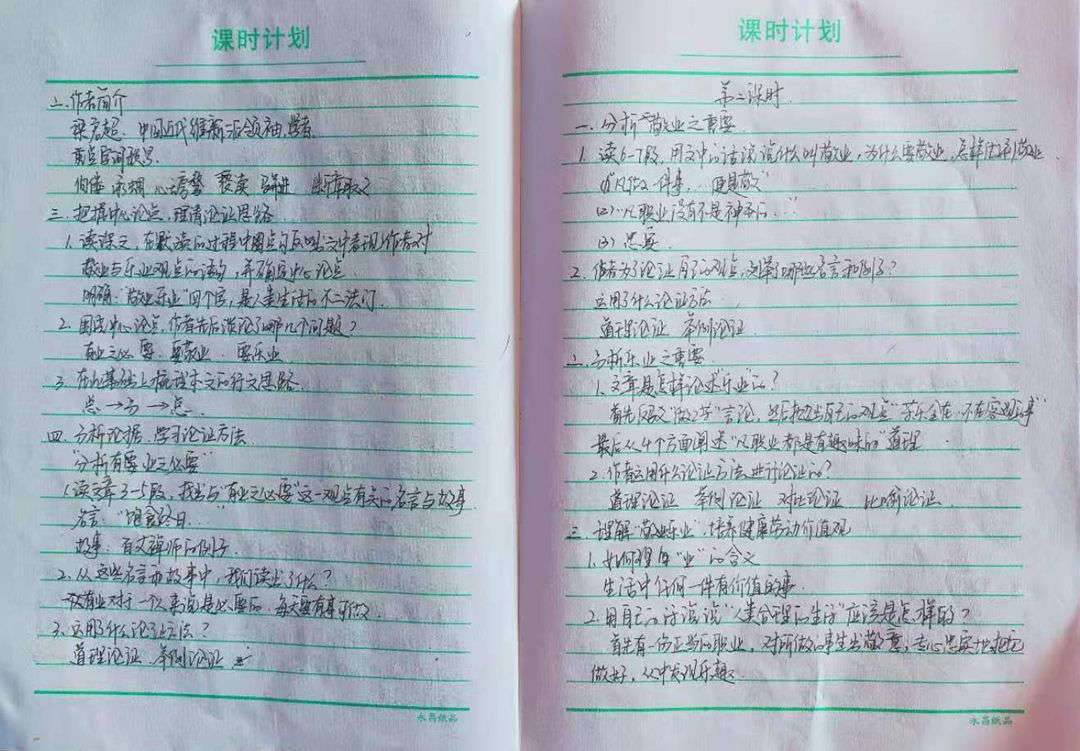 课时计划
二、作者简介
梁启超、中国近代维新派领袖，学者
三、把握中心论点，理清论证思路
1. 读课文，在默读的过程中圈点勾画出文中表现作者对
敬业与乐业观点的语句，并确定中心论点
明确："敬业乐业"四个字，是人类生活的不二法门。
2. 围绕中心论点，作者先后谈论了哪几个问题？
有业之必要 要敬业 要乐业
3. 在此基础上梳理本文的行文思路
总→分→总
四、分析论据，学习论证方法
"分析有业之必要"
1. 读文章3-5段，找出与"有业之必要"这一观点有关的名言与故事
名言："饱食终日……"
故事：百丈禅师的例子
2. 从这些名言和故事中，我们读出了什么？
有业对于一个人来说是必要的，每天要有事可做。
3. 运用了什么论证方法？
道理论证 举例论证
永昌纸品
课时计划
第二课时
一、分析"敬业之重要
1. 读6-7段，用文中的话谈谈什么叫敬业，为什么要敬业，怎样做到敬业
(1) "凡做一件事，……便是敬"
(2) "凡职业没有不是神圣的……"
(3)
2. 作者为了论证自己的观点，列举了哪些名言和例子？
运用了什么论证方法
道理论证 举例论证
二、分析乐业之重要
1. 文章是怎样论述"乐业"的？
首先 "做工苦"言论，然后提出自己的观点"苦乐全在 不在客观的事"
最后从4个方面阐述"凡职业都是有趣味的"道理
2. 作者运用什么论证方法进行论证的？
道理论证 举例论证 对比论证 比喻论证
三、理解"敬业乐业"，培养健康劳动价值观
1. 如何理解"业"的含义
生活中任何一件有价值的事
2. 用自己的话谈谈"人类合理的生活"应该是怎样的？
首先有一份正当的职业，对所做的事生出敬意，专心 地把它
做好，从中发现乐趣。
永昌纸品